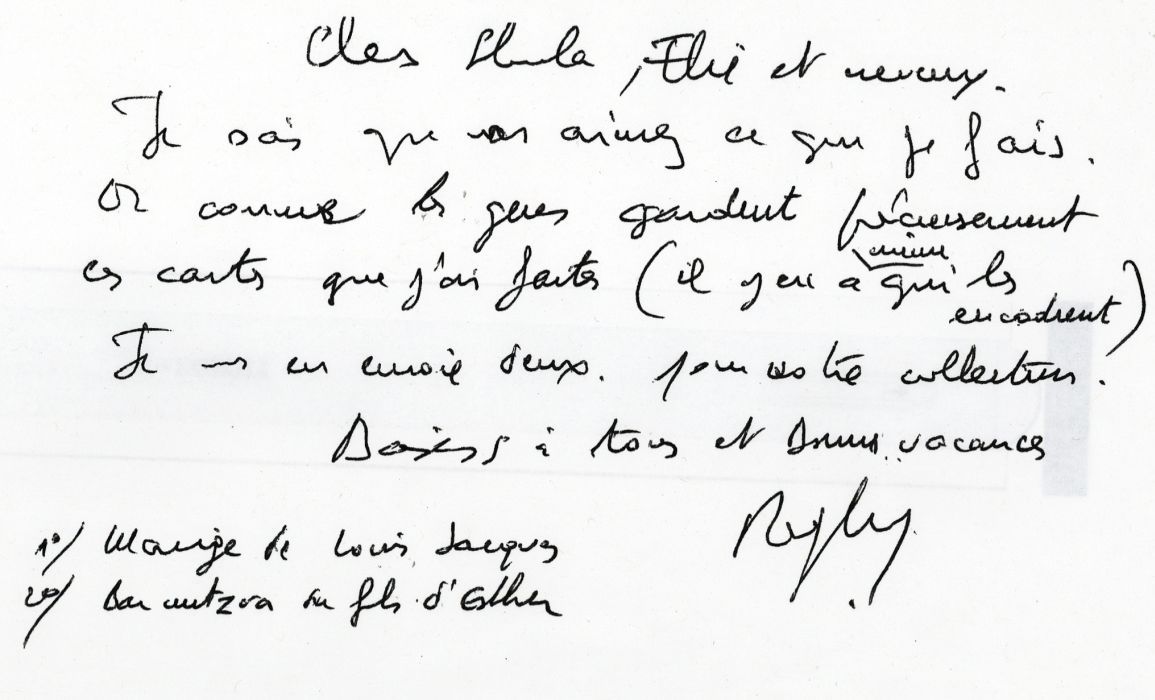 Chers Shula, Elie et neveux.
Je sais que vous aimez ce que je fais.
Or comme les gens gardent précieusement
ces cartes que j'ai faites (il y en a même qui les
encadrent)
Je vous en envoie deux. pour votre collection.
Baisers à tous et bonnes vacances
1°/ Mariage de Louis Jacques
2°/ Bar mitzva du fils d'Esther